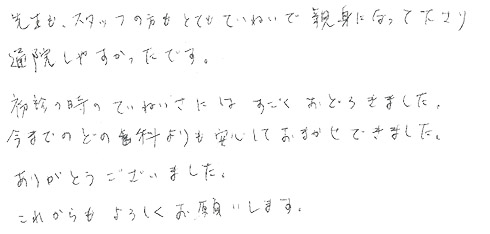 先生も、スタッフの方もとてもていねいで親身になって下さり
通院しやすかったです。
初診の時のていねいさにはすごくおどろきました。
今までのどの歯科よりも安心しておまかせできました。
ありがとうございました。
これからもよろしくお願いします。